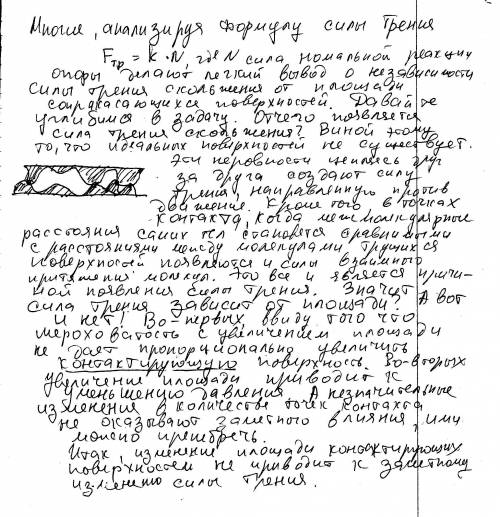 Многие, анализируя формулу силы трения
Fтр = k · N, где N сила номальной реакции
опоры делают легкий вывод о независимости
силы трения скольжения от площади
соприкасающихся поверхностей. Давайте
углубимся в задачу. Отчего появляется
сила трения скольжения? Виной этому
то, что идеальных поверхностей не существует.
Эти неровности цепляясь друг
за друга создают силу
трения, направленную против
движение. Кроме того в точках
контакта, когда межмолекулярные
расстояния самих тел становятся сравнимыми
с расстояниями между молекулами, трущихся
поверхностей появляются и силы взаимного
притяжения молекул. Это все и является причи-
ной появления силы трения. Значит
сила трения зависит от площади? А вот
и нет. Во-первых ввиду того что
шероховатость с увеличением площади
не дает пропорционально увеличить
контактирующую поверхность. Во-вторых
увеличение площади приводит к
уменьшению давления. А незначительные
изменения в количестве точек контакта
не оказывают заметного влияния, ими
можно пренебречь.
Итак, изменение площади контактирующих
поверхностей не приводит к заметному
изменению силы трения.